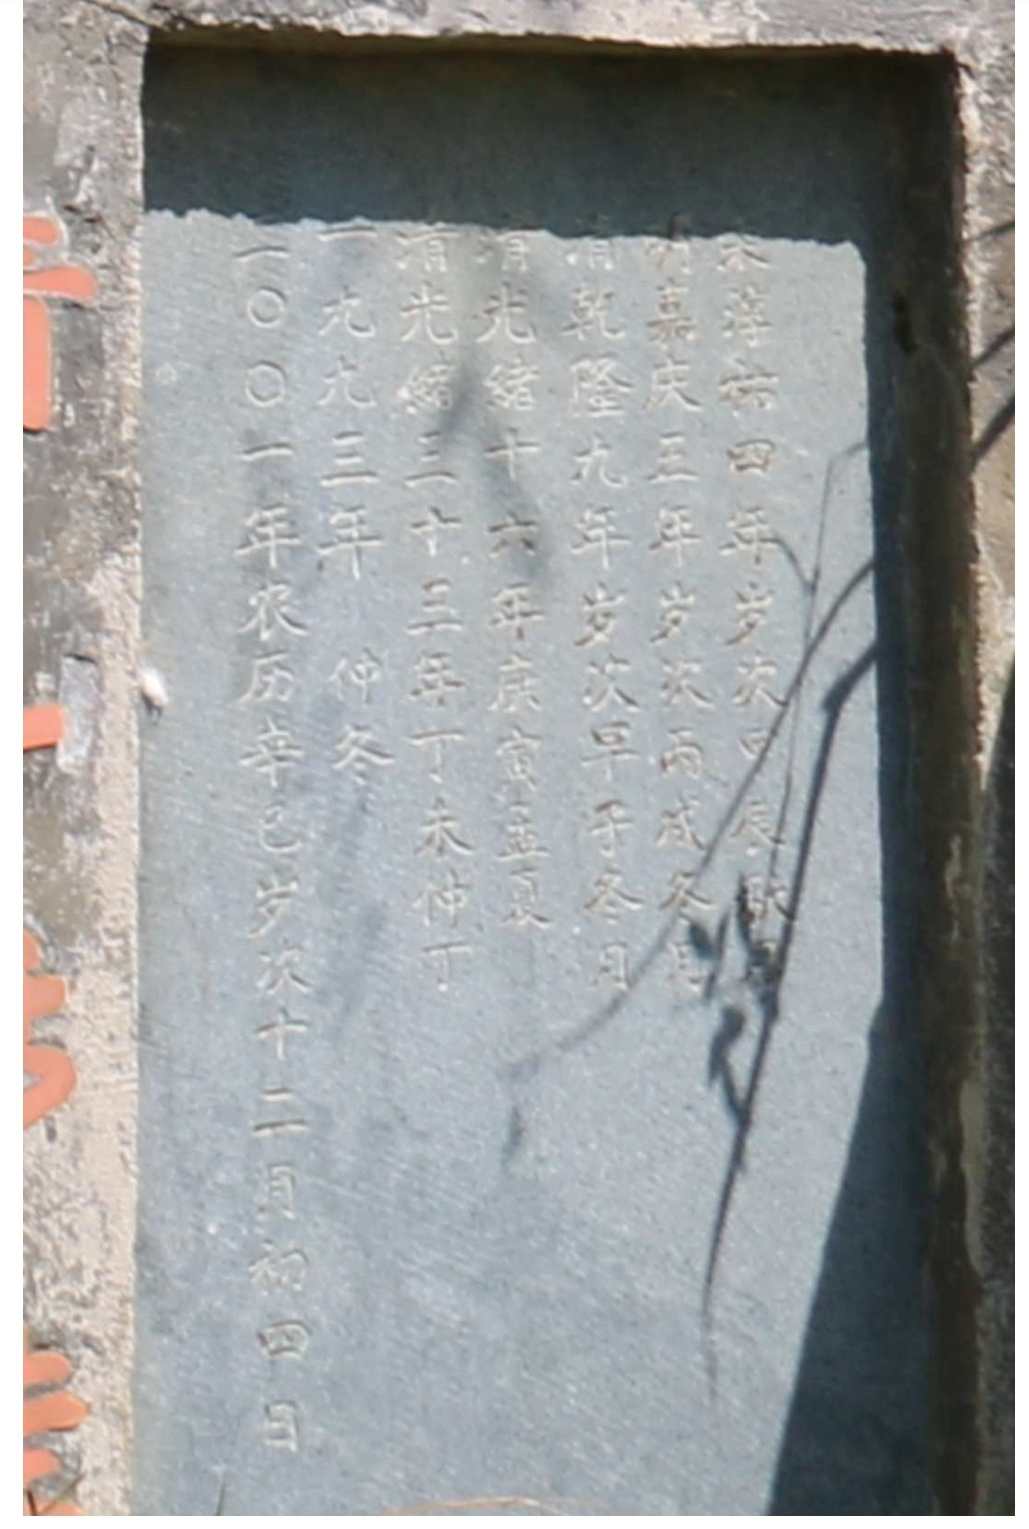 宋淳祐四年岁次甲辰月
明嘉庆五年岁次丙戌冬月
清乾隆九年岁次甲子冬月
清光緒十六年庚寅孟夏
清光緒三十三年丁未仲丁
一九九三年 仲冬
二〇〇一年农历辛巳岁次十二月初四日